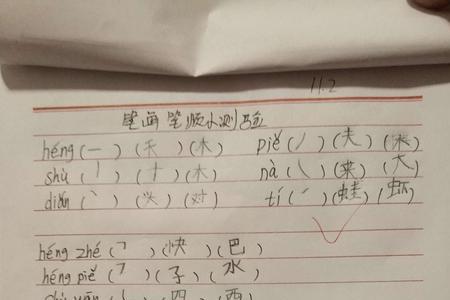 11.2
笔画笔顺小测验
héng (一) (禾) (木) piě (丿) (夫) (来)
shù (丨) (十) (木) nà (㇏) (来) (大)
diǎn (丶) (头) (对) tí (㇀) (蛙) (虾)
héng zhé (𠃍) (快) (巴)
héng piě (㇇) (子) (水)
(四) (西)